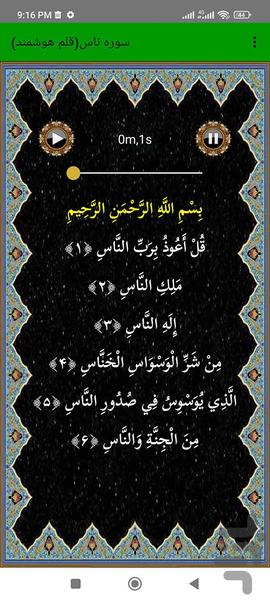 9:16 PM
سوره ناس(قلم هوشمند)
0m,1s
بِسْمِ اللَّهِ الرَّحْمَنِ الرَّحِيمِ
قُلْ أَعُوذُ بِرَبِّ النَّاسِ ﴿۱﴾
مَلِكِ النَّاسِ ﴿۲﴾
إِلَهِ النَّاسِ ﴿۳﴾
مِنْ شَرِّ الْوَسْوَاسِ الْخَنَّاسِ ﴿۴﴾
الَّذِي يُوَسْوِسُ فِي صُدُورِ النَّاسِ ﴿۵﴾
مِنَ الْجِنَّةِ وَالنَّاسِ ﴿۶﴾